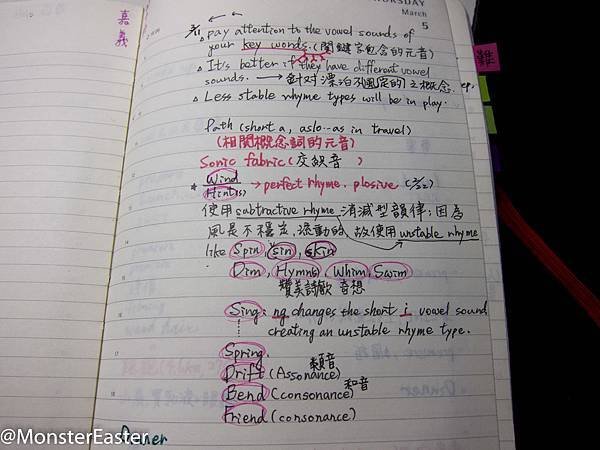 THURSDAY
March
5
嘉義
難
pay attention to the vowel sounds of
your key words. (関鍵字包含的元音)
△ It's better if they have different vowel
sounds. → 針对漂泊不穩定的主概念.
△ Less stable rhyme types will be in play.
Path (short a, aslo..as in travel)
(相関概念詞的元音)
Sonic fabric (交織音)
Wind
* Hint(s) → perfect rhyme. plosive
使用 subtractive rhyme 消減型韻律:因為
風是不穩定,流動的,故使用 unstable rhyme
like Spin, sin, skin
Dim, Hymns, Whim, Swim
讚美詩歌 奇想
Sing: ng changes the short i vowel sound
creating an unstable rhyme type.
Spring.
Drift (Assonance) 類音
Bend (consonance) 和音
Friend (consonance)
@MonsterEaster
Dinner